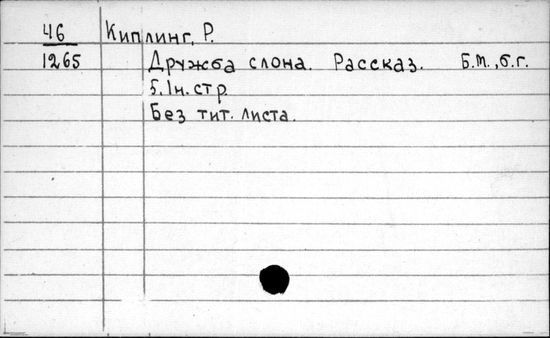 46 Киплинг, Р.
1265 Дружба слона. Рассказ. Б.м., б.г.
5.1н.стр.
Без тит. листа.